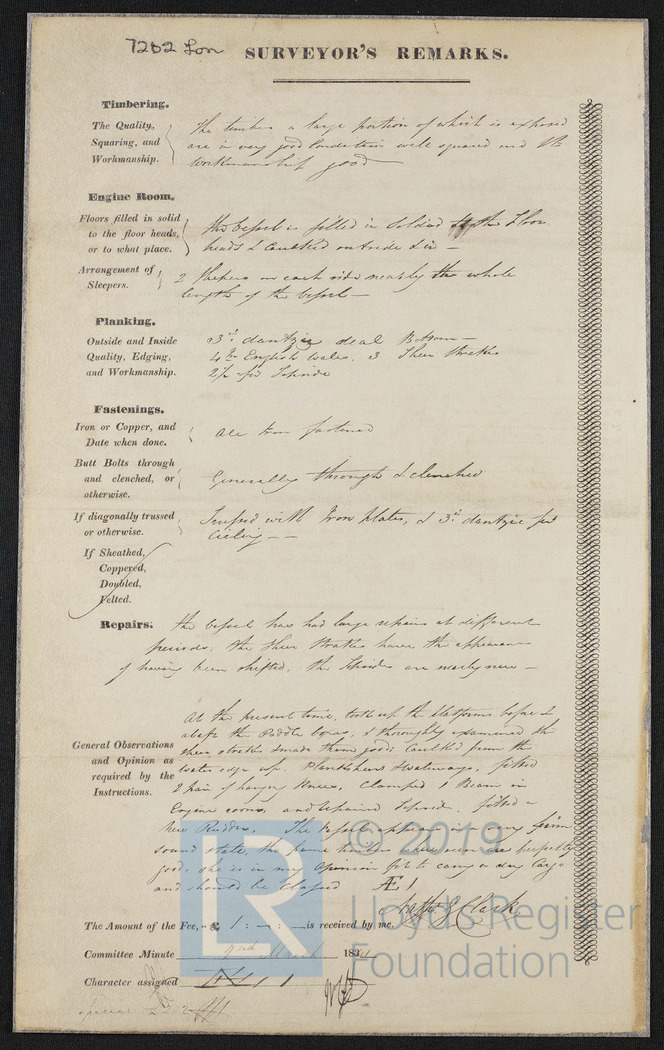 7202 Lon SURVEYOR'S REMARKS.
Timbering.
The Quality,
Squaring, and
Workmanship.
the timber a large portion of which is exposed
are in very good condition well squared and the
workmanship good
Engine Room.
Floors filled in solid
to the floor heads,
or to what place.
the Vessel is filled in Solid to the Floor
heads & Caulked outside & in —
Arrangement of
Sleepers.
2 Sleepers on each side nearly the whole
length of the Vessel —
Planking.
Outside and Inside
Quality, Edging,
and Workmanship.
3 in dantzic deal Bottom —
4 in English Wales. 3 Sheer Strakes
2½ fir Topside
Fastenings.
Iron or Copper, and
Date when done.
all Iron fastened
Butt Bolts through
and clenched, or
otherwise.
Generally through & clenched
If diagonally trussed
or otherwise.
Trussed with Iron plates, & 3 in dantzic fir
Cieling — —
If Sheathed,
Coppered,
Doubled,
Felted.
Repairs.
the Vessel has had large repairs at different
periods, the Sheer Strakes have the appearance
of having been shifted. the Topsides are nearly new —
General Observations
and Opinion as
required by the
Instructions.
At the present time, took up the platforms before &
abaft the Paddle boxes, & thoroughly examined the
made them good: Caulked from the
water edge up. Planksheers & waterways, fitted
2 pair of hanging Knees, Clamped 1 Beam in
Engine room, and repaired Topside. fitted a
New Rudder. The Vessel appears in a very firm
sound state, the frame timber when seen are perfectly
good. she is in my Opinion fit to carry a dry Cargo
and should be Classed Æ 1
Clark
The Amount of the Fee, £ 1 : – : – is received by me,
Committee Minute 2nd March 183
Character assigned 1
© 2019
LR
Lloyd's Register
Foundation